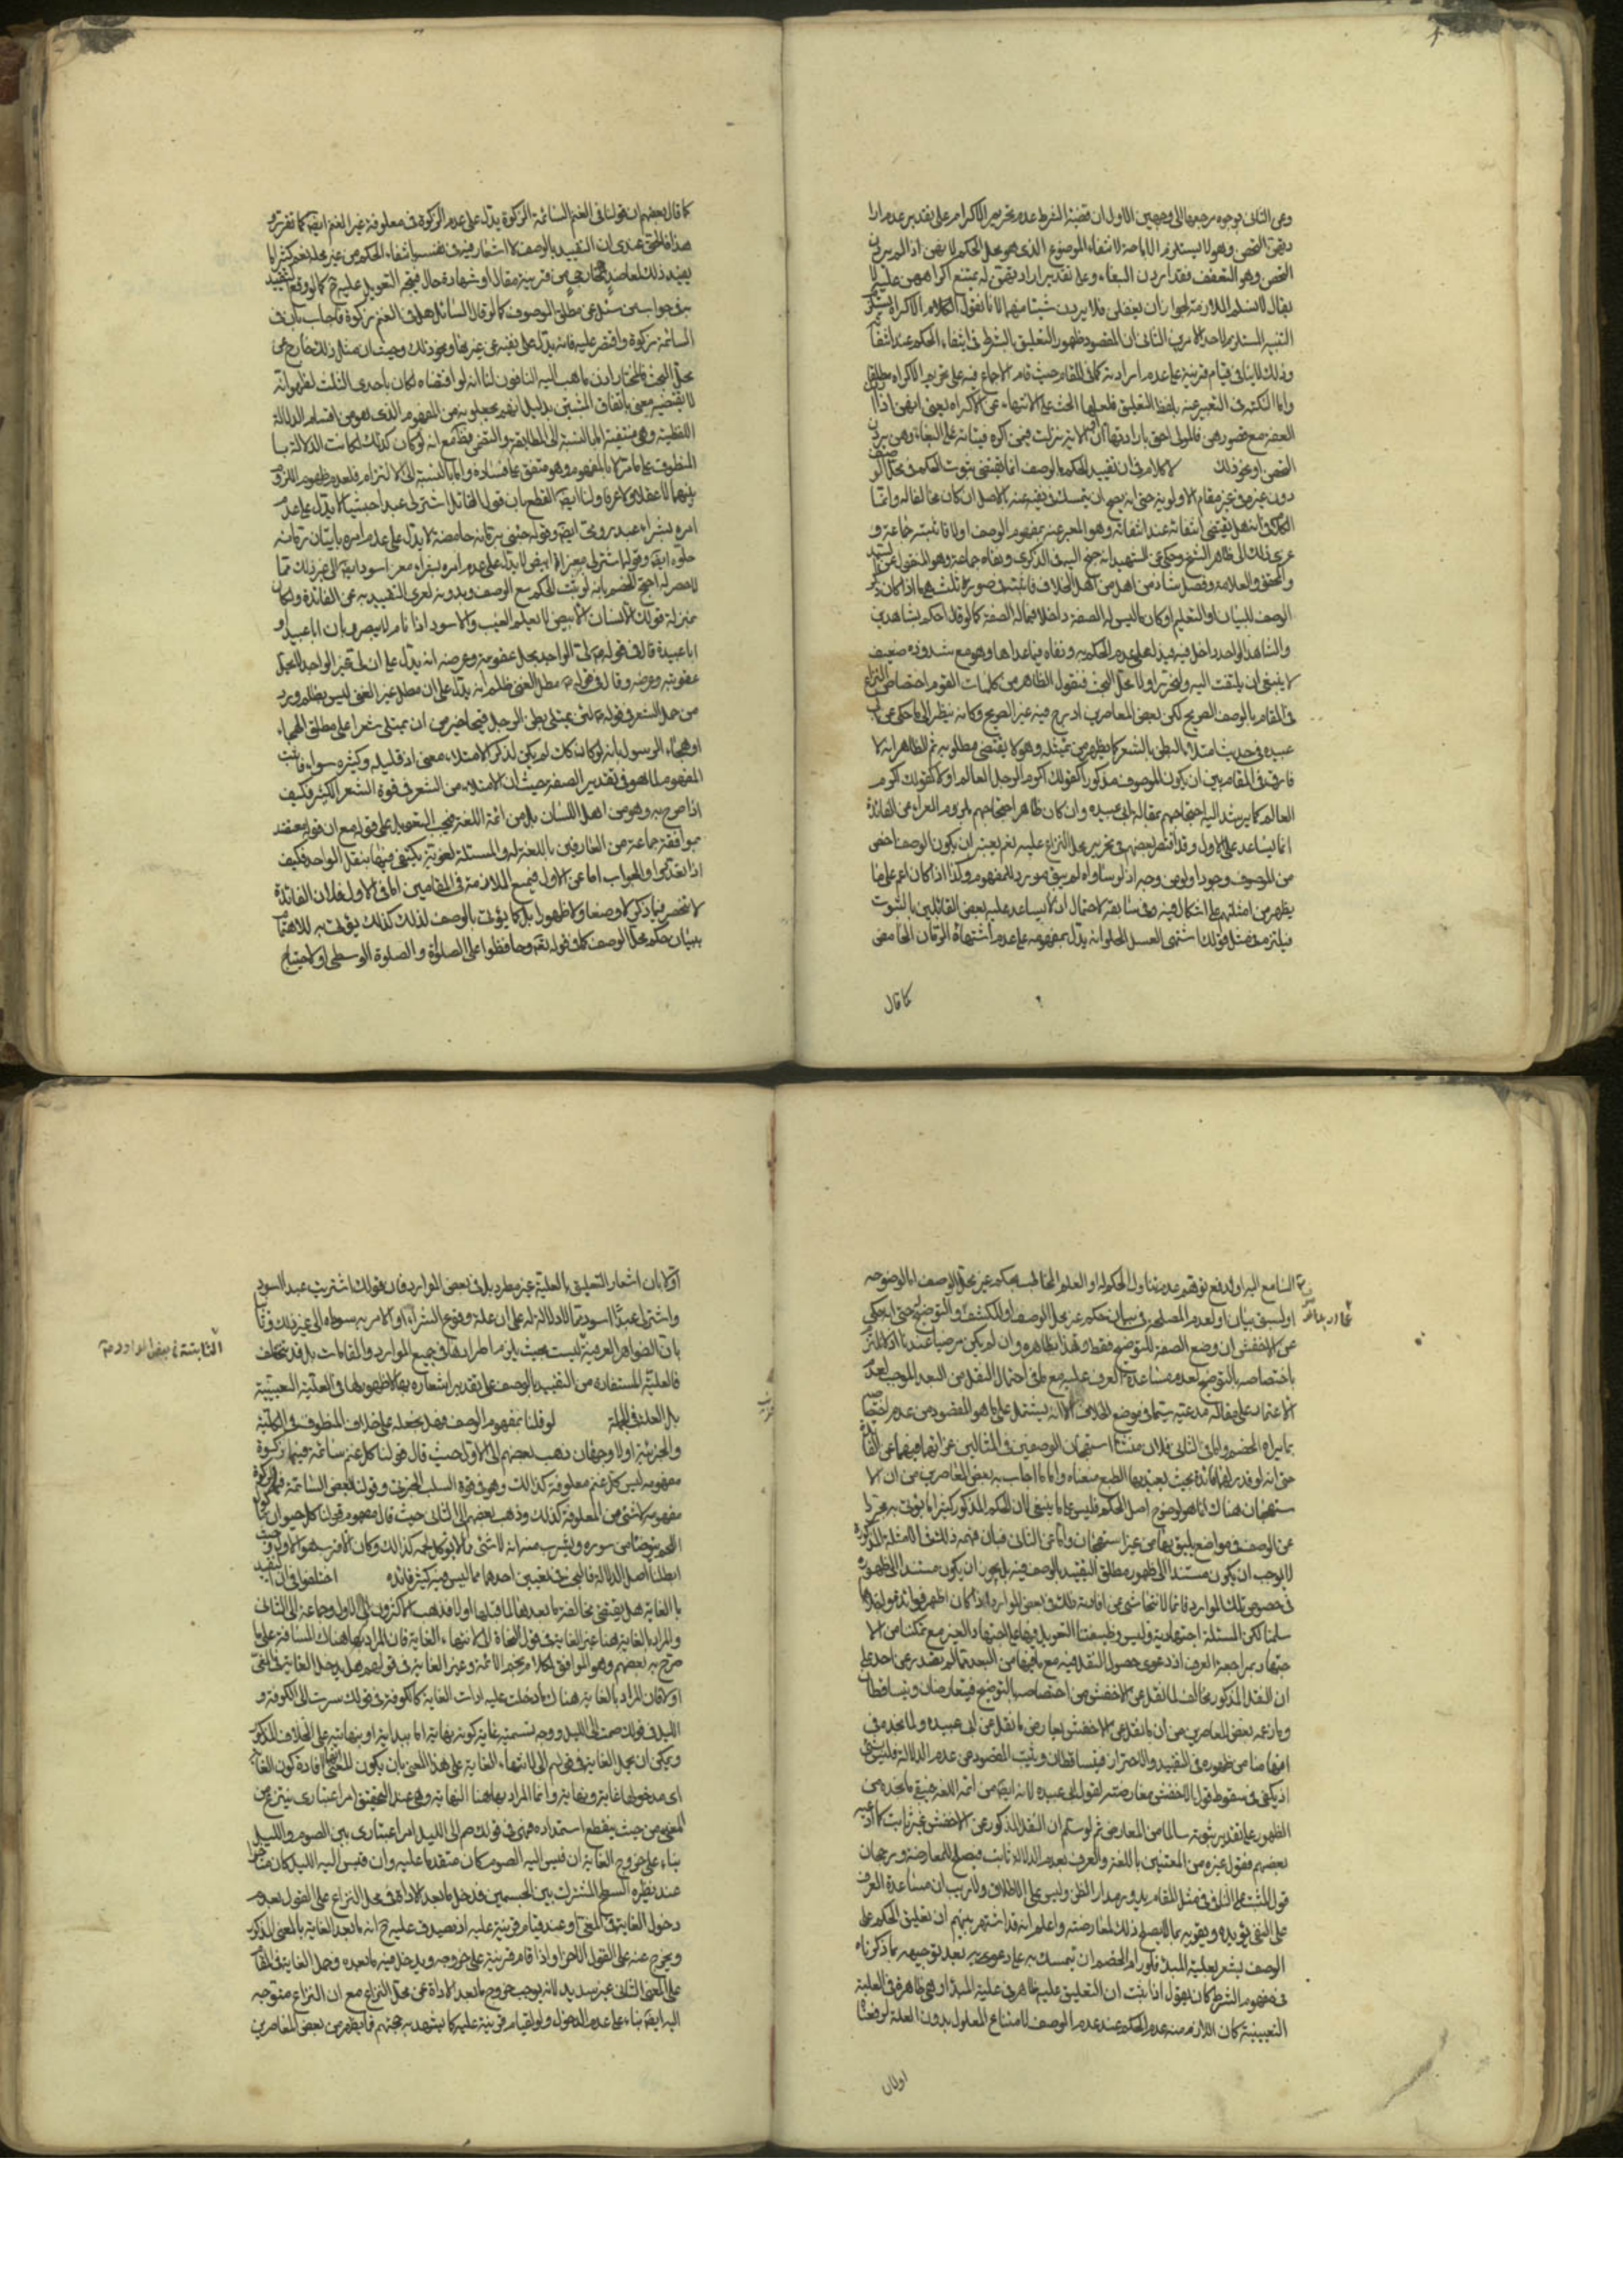 وعن الثاني بوجوه مرجعها الى وجهين الاول ان قضية الشرط عدم تحريم الاكراه على تقدير عدم ارا
دتهن التحصن وهو لا يستلزم الاباحة لانتفاء الموضوع الذي هو محل الحكم لا بغض اذا لم يردن
التحصن وهو التعفف فقد اردن البغاء وعلى تقدير ارادتهن له يمتنع اكراههن عليه لا
يقال لا نسلم الملازمة لجواز ان يغفلن فلا يردن شيئا منهما لانا نقول الكلام في الاكراه
التنبيه المستلزم لاحد الامرين الثاني ان المقصود ظهور التعليق بالشرط في انتفاء الحكم عند انتفا
وذلك لا ينافي قيام قرينة على عدم ارادته كما في المقام حيث قام الاجماع فيه على تحريم الاكراه مطلقا
واما النكتة في التعبير عنه بلفظ التعليق فلعلها الحث على الانتهاء عن الاكراه يعني انهن اذا ا
العفة مع قصورهن فالمولى احق بارادتها او ان الاية نزلت فيمن اكره فتياته على البغاء وهن يردن
التحصن او نحو ذلك لا كلام في ان تقييد الحكم بالوصف انما يقتضي ثبوت الحكم في محل الو
دون غيره في غير مقام الاولوية حتى انه يصح ان يتمسك في نفيه عنه بالاصل ان كان مخالفا له وانما
الكلام في انه هل يقتضي انتفائه عند انتفائه وهو المعبر عنه بمفهوم الوصف او لا فاثبته جماعة و
عزي ذلك الى ظاهر الشيخ وحكي عن الشهيد انه جنح اليه في الذكرى ونفاه جماعة وهو المحكي عن السيد
والمحقق والعلامة وفصل شاذ من اهل الخلاف فاثبته في صور ثلث
الوصف للبيان او التعليم او كان ما ليس له الصفة داخلا فيما له الصفة كما لو قال احكم بشاهدين
والشاهد الواحد داخل فيه فيدل على عدم الحكم به ونفاه فيما عداها وهو مع شذوذه ضعيف
لا ينبغي ان يلتفت اليه ولنحرر اولا محل البحث فنقول الظاهر من كلمات القوم اختصاص النزاع
في المقام بالوصف الصريح لكن بعض المعاصرين ادرج فيه غير الصريح وكانه نظر الى ما حكي عن ابي
عبيده في حديث امتلاء البطن بالشعر كما يظهر من تمثيله وهو لا يقتضي مطلوبه ثم الظاهر انه لا
فارق في المقام بين ان يكون الموصوف مذكورا كقولك اكرم الرجل العالم او لا كقولك اكرم
العالم كما يرشد اليه احتجاجهم بمقالة ابي عبيده وان كان ظاهر احتجاجهم بلزوم العراء عن الفائدة
انما يساعد على الاول وقد اقتصر بعضهم في تحرير محل النزاع عليه نعم يعتبر ان يكون الوصف اخص
من الموصوف وجودا ولو من وجه اذ لو ساواه لم يبق مورد للمفهوم وكذا اذا كان اعم على ما
يظهر من امثلتهم على اشكال فيه وفي سابقه لاحتمال ان لا يساعد عليه بعض القائلين بالثبوت
فيلتزم في مثل قولك اشتهي العسل الحلو انه يدل بمفهومه على عدم اشتهاء الرمان الحامض
كما قال
كما قال بعضهم ان قولنا في الغنم السائمة الزكوة يدل على عدم الزكوة في معلوفة غير الغنم ايضا كما تقرر
هذا فالحق عندي ان التقييد بالوصف لا اشعار فيه في نفسه بانتفاء الحكم من غير محله نعم كثيرا ما
يفيد ذلك لمعاضد خارجي من قرينة مقال او شهادة حال فيتجه التعويل عليه ح كما لو وقع التقييد
به في جواب من سئل عن مطلق الموصوف كما لو قال السائل هل في الغنم زكوة فاجاب بان في
السائمة زكوة واقتصر عليه فانه يدل على نفيه عن غيرها ونحو ذلك وحيث ان مثل ذلك خارج عن
محل البحث فالمختار اذن ما ذهب اليه النافون لنا انه لو اقتضاه لكان باحدى الثلث لظهور انه
لا يقتضيه معنى باتفاق المثبتين بدليل انهم يجعلونه من المفهوم الذي هو من اقسام الدلالة
اللفظية وهي منتفية اما بالنسبة الى المطابقة والتضمن فظ مع انه لو كان كذلك لكانت الدلالة با
المنطوق على ما مر لا بالمفهوم وهو متفق على فساده واما بالنسبة الى الالتزام فلعدم ظهور اللزوم
بينهما لا عقلا ولا عرفا ولنا ايضا القطع بان قول القائل اشتر لي عبدا حبشيا لا يدل على عدم
امره بشراء عبد رومي ايضا وقوله جئني برمانة حامضة لا يدل على عدم امره باتيان رمانة
حلوه ايضا وقوله اشتر لي معزا ابيض لا يدل على عدم امره بشراء معز اسود ايضا الى غير ذلك مما
لا حصر له احتج الخصم بانه لو ثبت الحكم مع الوصف وبدونه لعرى التقييد به عن الفائدة ولكان
بمنزلة قولك الانسان الابيض لا يعلم الغيب والاسود اذا نام لا يبصر وبان ابا عبيد او
ابا عبيدة قال في قوله لي الواجد يحل عقوبته وعرضه انه يدل على ان لي غير الواجد لا يحل
عقوبته وعرضه وقال في قوله مطل الغني ظلم انه يدل على ان مطل غير الغني ليس بظلم ورد
من حمل الشعر في قوله لئن يمتلئ بطن الرجل قيحا خير من ان يمتلئ شعرا على مطلق الهجاء
او هجاء الرسول بانه لو كان كك لم يكن لذكر الامتلاء معنى اذ قليله وكثيره سواء فاثبت
المفهوم لما هو في تقدير الصفة حيث ان الامتلاء من الشعر في قوة الشعر الكثير فكيف
اذا صرح به وهو من اهل اللسان بل من ائمة اللغة فيجب التعويل على قوله مع ان قوله معتضد
بموافقة جماعة من العارفين باللغة له والمسئلة لغوية يكتفى فيها بنقل الواحد فكيف
اذا تعدد والجواب اما عن الاول فبمنع الملازمة في المقامين اما في الاول فلان الفائدة
لا تنحصر فيما ذكر لا وضعا ولا ظهورا بل كما يؤتى بالوصف لذلك كذلك يؤتى به للاهتمام
ببيان حكم محل الوصف كما في قوله تعه وحافظوا على الصلوة والصلوة الوسطى او لاحتياج
السامع اليه او لدفع توهم عدم تناول الحكم له او العلم المخاطب بحكم غير محل الوصف اما لوضوحه
او لسبق بيان او لعدم المصلحة في بيان حكم غير محل الوصف او للكشف والتوضيح حتى انه حكي
عن الاخفش ان وضع الصفة للتوضيح فقط وهذا بظاهره وان لم يكن مرضيا عندنا اذ لا نلتزم
باختصاصه بالتوضيح لعدم مساعدة العرف عليه مع ما في احتمال النقل من البعد الموجب لعدم
الاعتماد على مقالة مدعيه سيما في موضع الخلاف الا انه يشتمل على ما هو المقصود من عدم اختصاصه
بما يراه الخصم واما في الثاني فلان منشأ استهجان الوصفين في المثالين عرائهما فيهما عن الفائدة
حتى انه لو قدر لهما فائدة بحيث يعتد بها الطبع منعناه واما ما اجاب به بعض المعاصرين من ان الا
ستهجان هناك انما هو لوضوح اصل الحكم فليس على ما ينبغي لان الحكم المذكور كثيرا ما يؤتى به مجردا
عن الوصف في مواضع يليق بها من غير استهجان واما عن الثاني فبان فهمه ذلك في الامثلة المذكورة
لا يوجب ان يكون مستندا الى ظهور مطلق التقييد بالوصف فيه بل يجوز ان يكون مستندا الى ظهوره
في خصوص تلك الموارد فانا لا نتحاشى عن افادته ذلك في بعض الموارد اذا كان اظهر فوائده
سلمنا لكن المسئلة اجتهادية وليس وظيفتنا التعويل فيها على اجتهاد الغير مع تمكننا من الا
جتهاد بمراجعة العرف اذ دعوى حصول النقل فيه مع ما فيها من البعد مما لم يقدر عن احد على
ان النقل المذكور مخالف لما نقل عن الاخفش من اختصاصه بالتوضيح فيتعارضان ويتساقطان
وما زعمه بعض المعاصرين من ان ما نقل عن الاخفش لا يعارض ما نقل عن ابي عبيده ولما نجد في
افهامنا من ظهوره في التقييد والاحتراز فيتساقطان ويثبت المقصود من عدم الدلالة فليس بشئ
اذ يكفي في سقوط قول الاخفش معارضته لقول ابي عبيده لانه ايضا من ائمة اللغة فيبقى ما نجده من
الظهور على تقدير ثبوته سالما من المعارض ثم لو سلم ان النقل المذكور عن الاخفش غير ثابت كما ادعيه
بعضهم فقول غيره من المعتنين باللغة والعرف بعدم الدلالة ثابت فيصلح للمعارضة ورجحان
قول المثبت على النافي في مثل المقام يدور مدار الظن وليس على الاطلاق ولا ريب ان مساعدة العرف
على النفي يؤيده ويقويه بما لا يصلح ذلك لمعارضته واعلم انه قد اشتهر بينهم ان تعليق الحكم على
الوصف يشعر بعلية المبدء فلو رام الخصم ان يتمسك به على دعويه بعد توجيهه بما ذكرناه
في مفهوم الشرط كان يقول اذا ثبت ان التعليق عليه ظاهر في علية المبدء اذ هي ظاهر في العلية
التعيينية كان اللازم منه عدم الحكم عند عدم الوصف لامتناع المعلول بدون العلة لدفعنا
اولا بان
اولا بان اشعار التعليق بالعلية غير مطرد بل في بعض الموارد فان قولك اشتريت عبدا اسود
واشتر لي عبدا اسود مما لا دلالة له على ان علة وقوع الشراء او الامر به سواده الى غير ذلك وثانيا
بان الظواهر العرفية ليست بحيث يلزم اطرادها في جميع الموارد والمقامات بل قد تختلف
الثابتة في بعض الموارد
فالعلية المستفاده من التقييد بالوصف على تقدير اشعاره بها لا ظهور لها في العلية التعيينية
بل العلة في الجملة لو قلنا بمفهوم الوصف فهل نجعله على خلاف المنطوق في الكلية
والجزئية اولا وجهان ذهب بعضهم الى الاول حيث قال قولنا كل غنم سائمة فيها زكوة
مفهومه ليس كل غنم معلوفة كذلك وهو في قوة السلب الجزئي وقولنا بعض السائمة فيها زكوة
مفهومه لا شئ من المعلوفة كذلك وذهب بعضهم الى الثاني حيث قال مفهوم قولنا كل حيوان ماكول
اللحم يتوضأ من سوره ويشرب منه انه لا شئ مما لا يؤكل لحمه كذلك وكان الاقرب هو الاول وحيث
ابطلنا اصل الدلالة فالبحث في تعيين احدهما مما ليس فيه كثير فائده اختلفوا في ان التقييد
بالغاية هل يقتضي مخالفة ما بعدها لما قبلها اولا فذهب الاكثرون الى الاول وجماعة الى الثاني
والمراد بالغاية هنا غير الغاية في قول النحاة الى لانتهاء الغاية فان المراد بها هناك المسافة على ما
صرح به بعضهم وهو الموافق لكلام نجم الائمة وغير الغاية في قولهم هل يدخل الغاية في المغيى
اولا فان المراد بالغاية هناك ما دخلت عليه ادات الغاية كالكوفة في قولك سرت الى الكوفة و
الليل في قولك صمت الى الليل ووجه تسميته غاية كونه نهاية اما بدايته او بنهايته على الخلاف المذكور
ويمكن ان يحمل الغاية في قولهم الى لانتهاء الغاية على هذا المعنى بان يكون المعنى افادة كون الغا
اي مدخولها غاية ونهاية وانما المراد بها هنا النهاية وهي عند التحقيق امر اعتباري ينتزع من
المغيى من حيث ينقطع استمداده فهي في قولك صم الى الليل امر اعتباري بين الصوم والليل
بناء على خروج الغاية ان قيس اليه الصوم كان متقدما عليه وان قيس اليه الليل كان متاخرا
عنه نظيره السطح المشترك بين الجسمين فدخل ما بعد الاداة في محل النزاع على القول بعدم
دخول الغاية في المغيى او عند قيام قرينة عليه اذ يصدق عليه ح انه ما بعد الغاية بالمعنى المذكور
ويخرج عنه على القول الاخر او اذا قام قرينة على خروجه ويدخل فيه ما بعده وحمل الغاية في المقام
على المعنى الثاني غير سديد لانه يوجب خروج ما بعد الاداة عن محل النزاع مع ان النزاع متوجه
اليه ايضا بناء على عدم الدخول ولو لقيام قرينة عليه كما يشهد به حجتهم فما يظهر من بعض المعاصرين